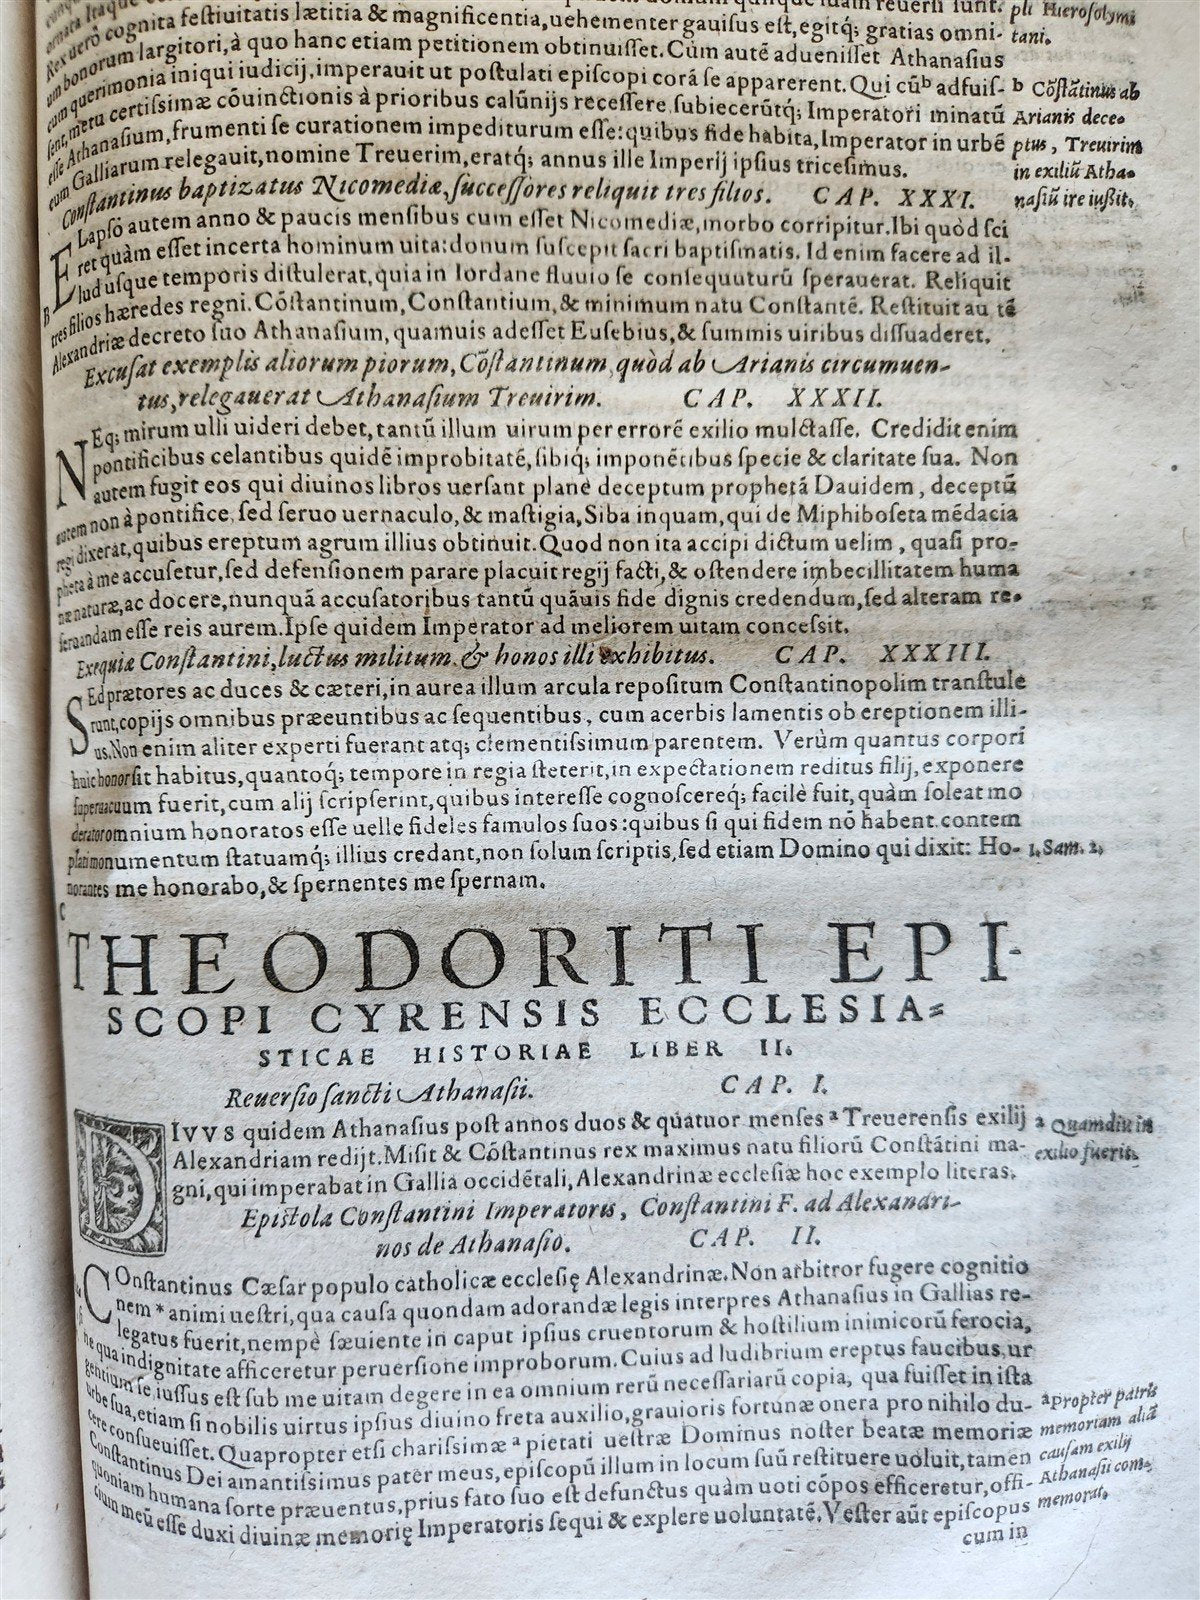 domum quinque iam reuersi sunt.
ornata itaque
Rex uerò cognita festiuitatis lætitia & magnificentia, uehementer gauisus est, egitq; gratias omni-
um bonorum largitori, à quo hanc etiam petitionem obtinuisset. Cùm autē aduenisset Athanasius
cum querimonia iniqui iudicij, imperauit ut postulati episcopi corā se apparerent. Qui cū b adfuis-
sent, metu certissimæ cōuinctionis à prioribus calūnijs recessere, subiecerūtq; Imperatori minatū
esse Athanasium, frumenti se curationem impediturum esse: quibus fide habita, Imperator in urbē
eum Galliarum relegauit, nomine Treuerim, eratq; annus ille Imperij ipsius tricesimus.
pli Hierosolymi
tani.
b Cōstātinus ab
Arianis dece-
ptus, Treuirim
in exiliū Atha-
nasiū ire iussit.
Constantinus baptizatus Nicomediæ, successores reliquit tres filios. CAP. XXXI.
ELapso autem anno & paucis mensibus cum esset Nicomediæ, morbo corripitur. Ibi quòd sci
ret quàm esset incerta hominum uita: donum suscepit sacri baptismatis. Id enim facere ad il-
lud usque temporis distulerat, quia in Iordane fluuio se consequuturū sperauerat. Reliquit
B
tres filios hæredes regni. Cōstantinum, Constantium, & minimum natu Constantē. Restituit au tē
Alexandriæ decreto suo Athanasium, quamuis adesset Eusebius, & summis uiribus dissuaderet.
Excusat exemplis aliorum piorum, Cōstantinum, quòd ab Arianis circumuen-
tus, relegauerat Athanasium Treuirim. CAP. XXXII.
NEq; mirum ulli uideri debet, tantū illum uirum per errorē exilio mulctasse. Credidit enim
pontificibus celantibus quidē improbitatē, sibiq; imponētibus specie & claritate sua. Non
autem fugit eos qui diuinos libros uersant planè deceptum prophetā Dauidem, deceptū
autem non à pontifice, sed seruo uernaculo, & mastigia, Siba inquam, qui de Miphiboseta mēdacia
regi dixerat, quibus ereptum agrum illius obtinuit. Quod non ita accipi dictum uelim, quasi pro-
pheta à me accusetur, sed defensionem parare placuit regij facti, & ostendere imbecillitatem huma
næ naturæ, ac docere, nunquā accusatoribus tantū quāuis fide dignis credendum, sed alteram re-
seruandam esse reis aurem. Ipse quidem Imperator ad meliorem uitam concessit.
Exequiæ Constantini, luctus militum & honos illi exhibitus. CAP. XXXIII.
SEd prætores ac duces & cæteri, in aurea illum arcula repositum Constantinopolim transtule
runt, copijs omnibus præeuntibus ac sequentibus, cum acerbis lamentis ob ereptionem illi-
us. Non enim aliter experti fuerant atq; clementissimum parentem. Verùm quantus corpori
huic honor sit habitus, quantoq; tempore in regia steterit, in expectationem reditus filij, exponere
superuacuum fuerit, cum alij scripserint, quibus interesse cognoscereq; facilè fuit, quàm soleat mo
derator omnium honoratos esse uelle fideles famulos suos: quibus si qui fidem nō habent contem
plati monumentum statuamq; illius credant, non solum scriptis, sed etiam Domino qui dixit: Ho-
norantes me honorabo, & spernentes me spernam.
1. Sam. 2.
C
THEODORITI EPI-
SCOPI CYRENSIS ECCLESIA-
STICAE HISTORIAE LIBER II.
Reuersio sancti Athanasii. CAP. I.
DIVVS quidem Athanasius post annos duos & quatuor menses a Treuerensis exilij
Alexandriam redijt. Misit & Cōstantinus rex maximus natu filiorū Constātini ma-
gni, qui imperabat in Gallia occidētali, Alexandrinæ ecclesiæ hoc exemplo literas.
a Quamdiu in
exilio fuerit.
Epistola Constantini Imperatoris, Constantini F. ad Alexandri-
nos de Athanasio. CAP. II.
COnstantinus Cæsar populo catholicæ ecclesię Alexandrinæ. Non arbitror fugere cognitio
nem * animi uestri, qua causa quondam adorandæ legis interpres Athanasius in Gallias re-
legatus fuerit, nempè sæuiente in caput ipsius cruentorum & hostilium inimicorū ferocia,
ne qua indignitate afficeretur peruersione improborum. Cuius ad ludibrium ereptus faucibus, ur
gentium se, iussus est sub me uitam degere in ea omnium rerū necessariarū copia, qua fuisset in ista
urbe sua, etiam si nobilis uirtus ipsius diuino freta auxilio, grauioris fortunæ onera pro nihilo du-
cere consueuisset. Quapropter etsi charissimæ a pietati uestræ Dominus noster beatæ memoriæ
Constantinus Dei amantissimus pater meus, episcopū illum in locum suū restituere uoluit, tamen
quoniam humana sorte præuentus, prius fato suo est defunctus quàm uoti cōpos efficeretur, offi-
cium meū esse duxi diuinæ memorię Imperatoris sequi & explere uoluntatē. Vester aūt episcopus
cum in
a Propter patris
memoriam aliā
causam exilij
Athanasii com-
memorat.